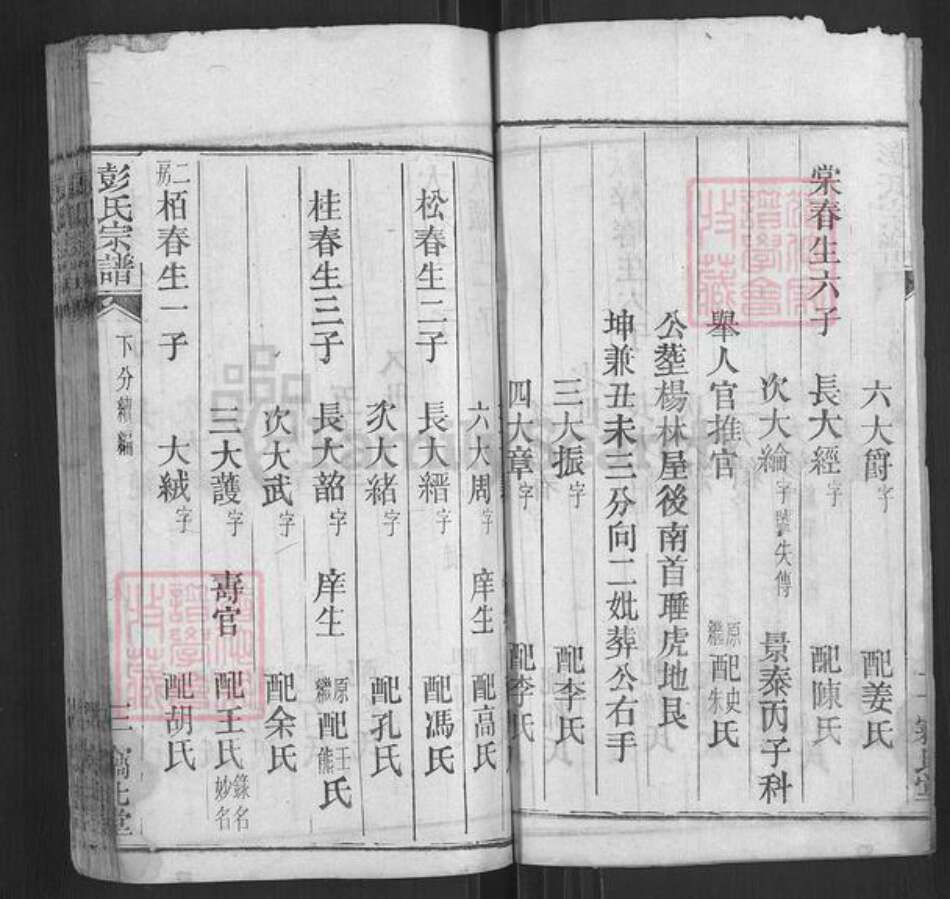 六大爵字 配姜氏
棠春生六子 長大經字 配陳氏
次大綸字號失傳 景泰丙子科
舉人官推官 原配史氏 繼配朱氏
公塟楊林屋後南首睡虎地艮
坤兼丑未三分向二妣葬公右手
三大振字 配李氏
四大章字 配李氏
六大周字 庠生 配高氏
松春生二子 長大縉字 配馮氏
次大緒字 配孔氏
桂春生三子 長大韶字 庠生 原配王氏 繼配熊氏
次大武字 配余氏
三大護字 壽官 配王氏 錄名妙名
二房栢春生一子 大絨字 配胡氏
彭氏宗譜 下分續編 三